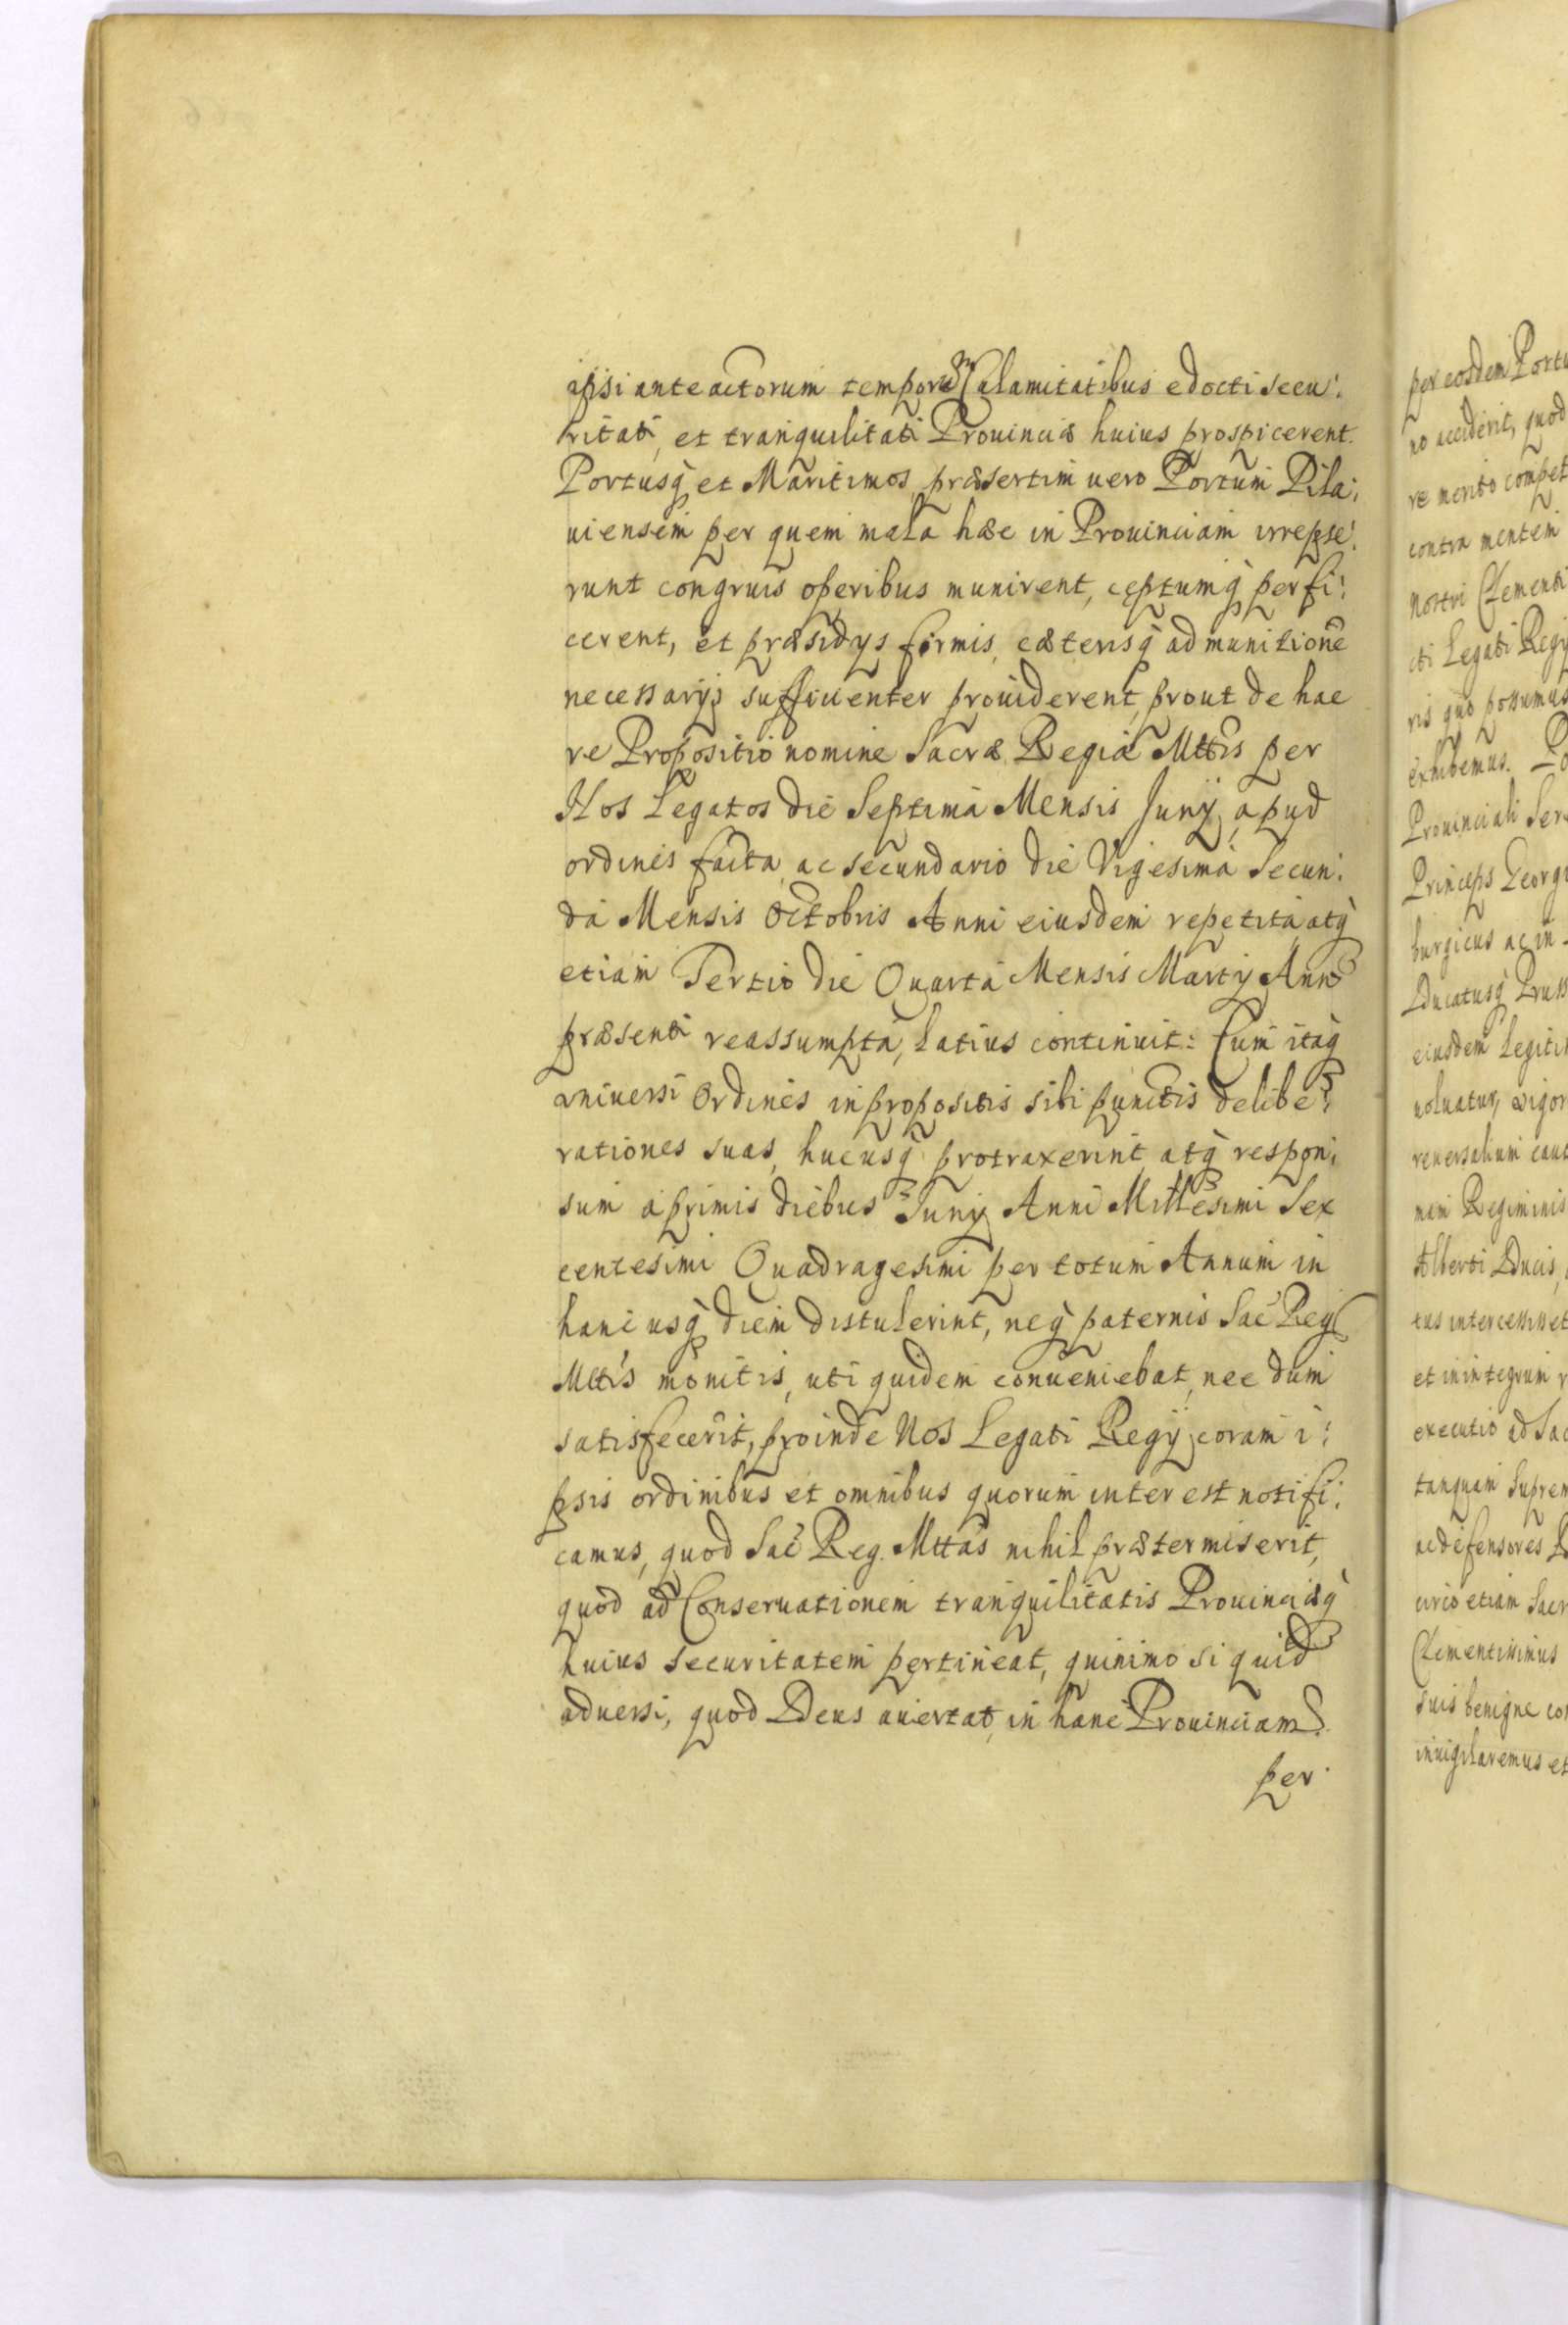 ipsi anteactorum temporū Calamitatibus edocti secu:
ritati, et tranquilitati Prouinciæ huius prospicerent.
Portusq̀ et Maritimos, præsertim uero Portum Pila:
uiensem per quem mala hæc in Prouinciam irrepse:
runt congruis operibus munirent, cęptumq̀ perfi:
cerent, et præsidys firmis, cæterisq̀ ad munitionē
necessarijs sufficienter prouiderent, prout de hac
re Propositio nomine Sacræ Regiæ Mttis per
Nos Legatos die Septima Mensis Junij, apud
ordines facta, ac secundario die Vigesima Secun:
da Mensis Octobris Anni eiusdem repetita, atq̀
etiam Tertio die Quarta Mensis Martij Anno
præsenti reassumpta, latius continuit: Cum itaq̀
vniuersi Ordines in propositis sibi punctis delibe:
rationes suas, hucusq̀ protraxerint, atq̀ respon:
sum a primis diebus Junij Anni Millesimi Sex
centesimi Quadragesimi per totum Annum in
hanc usq̀ diem distulerint, neq̀ paternis Sac̄ Reg
Mttis monitis, uti quidem conueniebat, nec dum
satisfecerit, proinde Nos Legati Regij coram i:
psis ordinibus et omnibus quorum interest notifi:
camus, quod Sac̄ Reg. Mttas nihil prætermiserit,
quod ad Conseruationem tranquilitatis Prouinciæq̀
huius securitatem pertineat, quinimo si quid
aduersi, quod Deus auertat, in hanc Prouinciam
per
per eosdem Portu
no acciderit, quod
re merito compet
contra mentem
Nostri Clementi
cti Legati Regy
ris quo possumus
exhibemus. Po
Prouinciali Ser
Princeps Georgi
burgicus ac in
Ducatusq̀ Pruss
eiusdem Legiti
uoluatur, vigor
reuersalium caut
mam Regiminis
Alberti Ducis,
tus intercessisset
et in integrum r
executio ad Sac
tanquam Suprem
ac defensores D
circo etiam Sacr
Clementissimus
suis benigne co
inuigilaremus et